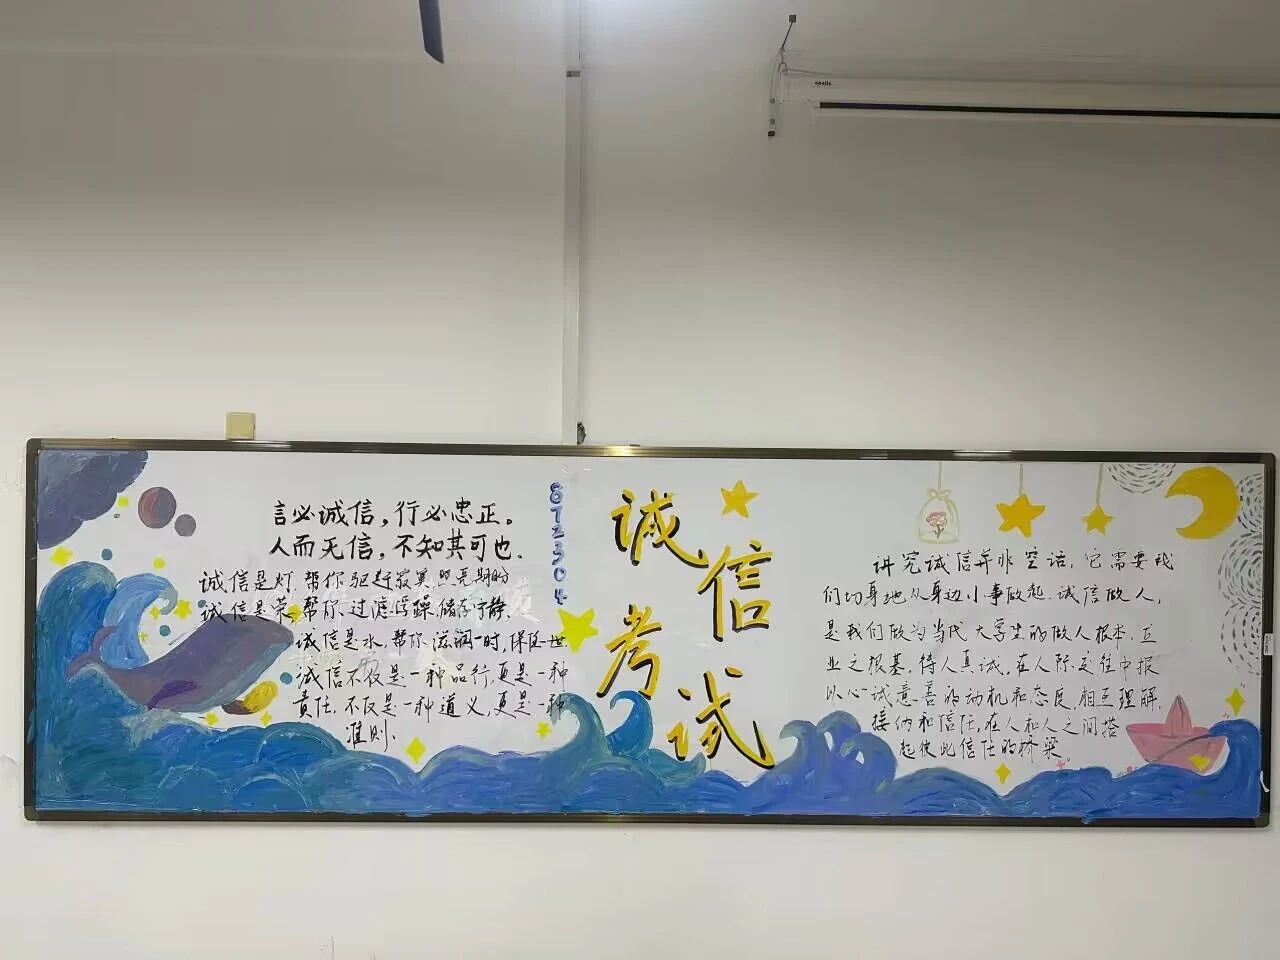 言必诚信，行必忠正。
人而无信，不知其可也.
诚信是灯,帮你驱赶寂寞,照亮期盼
诚信是荣,帮你过滤浮躁,储存宁静.
诚信是水,帮你滋润一时,保任一世.
诚信不仅是一种品行,更是一种
责任,不仅是一种道义,更是一种
准则.
8723304
诚信
考试
讲究诚信并非空话,它需要我
们切身地从身边小事做起.诚信做人,
是我们做为当代大学生的做人根本,立
业之根基.待人真诚,在人际交往中报
以心诚意善的动机和态度,相互理解,
接纳和信任,在人和人之间搭
起彼此信任的桥梁。